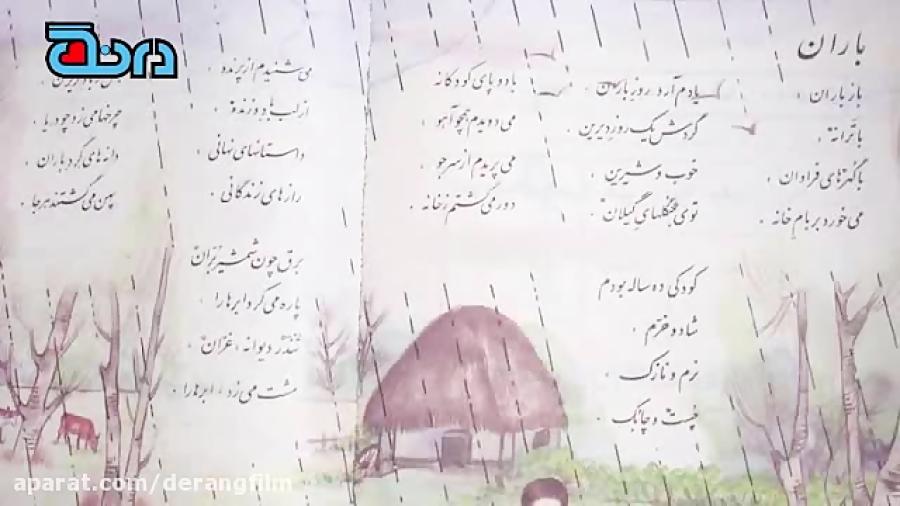 باران
باز باران ،
با ترانه
با گهرهای فراوان ،
می خورد بر بام خانه .
یادم آرد روز باران
گردش یک روز دیرین .
خوب و شیرین
توی جنگلهای گیلان .
کودکی ده ساله بودم
شاد و خرّم
نرم و نازک
چست و چابک
با دو پای کودکانه
می دویدم همچو آهو
می پریدم از سر جو
دور می گشتم ز خانه .
می شنیدم از پرنده
از لب باد وزنده
داستانهای نهانی
رازهای زندگانی
برق چون شمشیر برّان
پاره می کرد ابرها را
تندر دیوانه ، غرّان
مشت می زد ، ابرها را .
چرخها می زد چو دریا
دانه های گرد باران
پهن می گشتند هر جا
درنگ
aparat.com/derangfilm